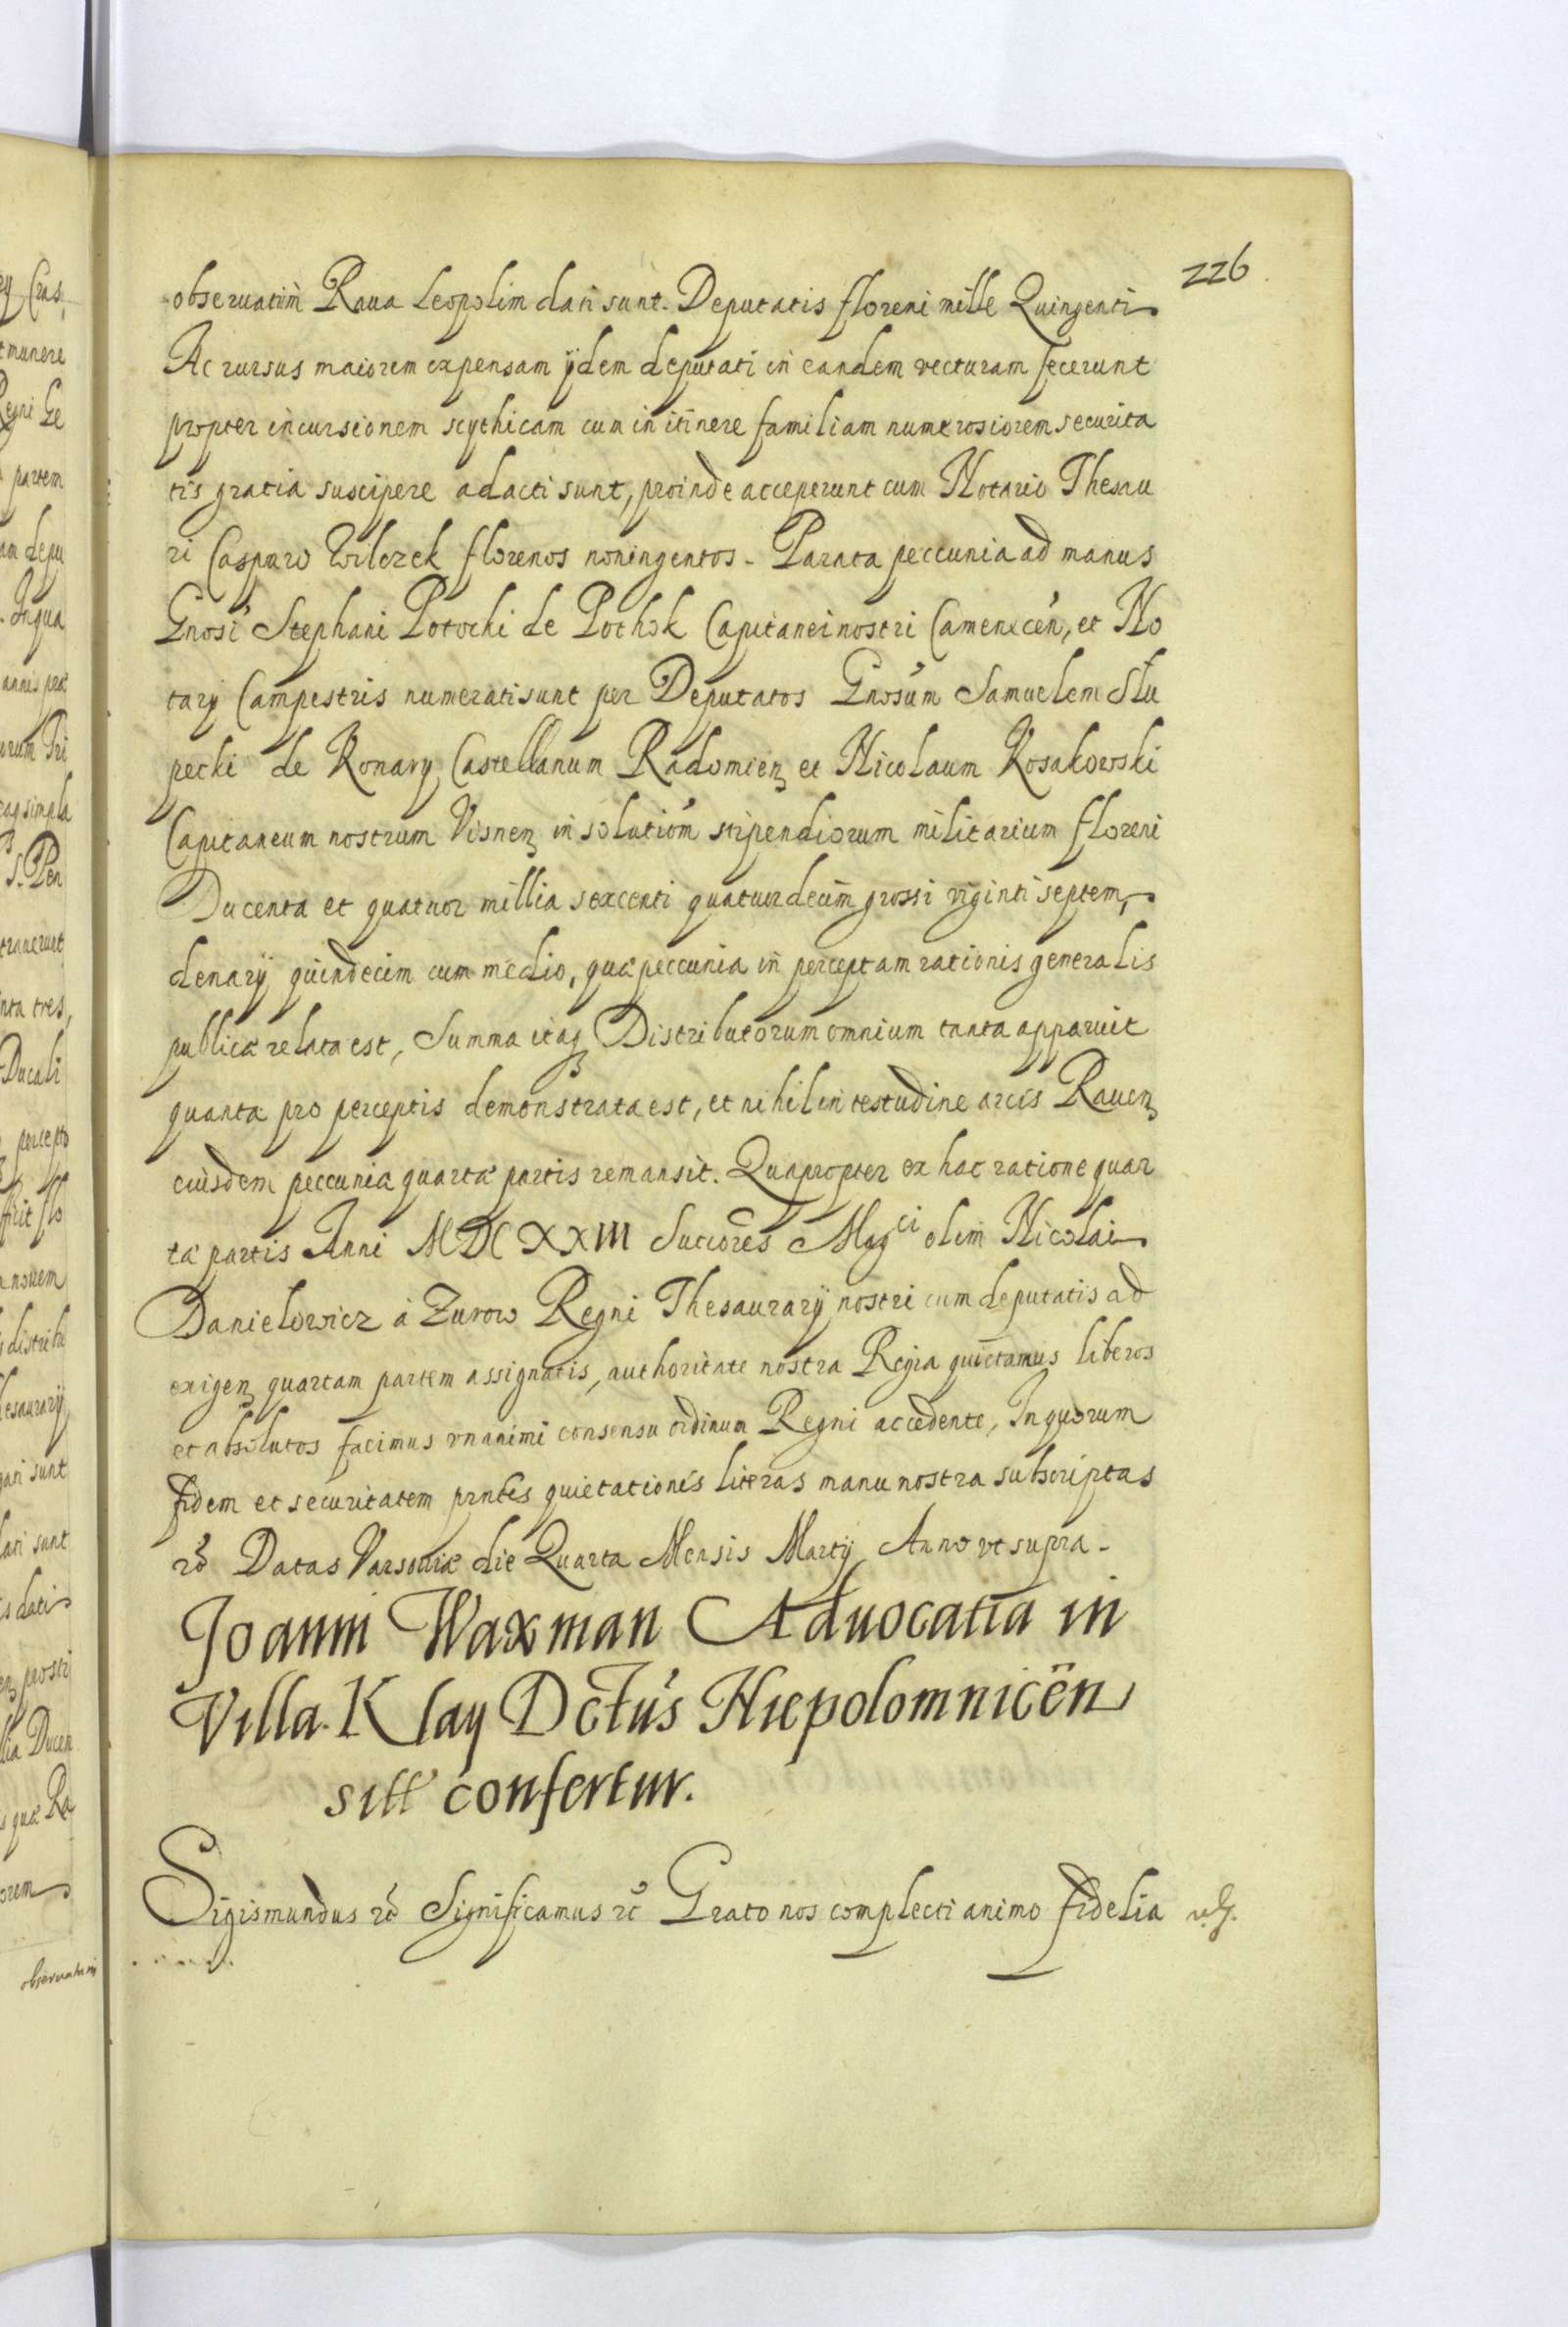 226
obseruatum Raua Leopolim dati sunt. Deputatis floreni mille Quingenti
Ac rursus maiorem expensam ijdem deputati in eandem vecturam fecerunt
propter incursionem scythicam cum in itinere familiam numerosiorem securita
tis gratia suscipere adacti sunt, proinde acceperunt cum Notario Thesau
ri Casparo Wilczek florenos noningentos. Parata peccunia ad manus
Gnosi Stephani Potocki de Pothok Capitanei nostri Camenecen, et No
tarij Campestris numerati sunt per Deputatos Gnosum Samuelem Slu
pecki de Konary Castellanum Radomien et Nicolaum Kosakowski
Capitaneum nostrum Visnen in solution stipendiorum militarium floreni
Ducenta et quatuor millia sexcenti quatuordecim grossi viginti septem,
denarij quindecim cum medio, quæ peccunia in perceptam rationis generalis
publicæ relata est, Summa itaq Distributorum omnium tanta apparuit
quanta pro perceptis demonstrata est, et nihil in testudine arcis Rauen
eiusdem peccuniæ quartæ partis remansit. Quapropter ex hac ratione quar
tæ partis Anni MDCXXIII Succores Magci olim Nicolai
Danielowicz à Zurow Regni Thesaurarij nostri cum deputatis ad
exigen quartam partem assignatis, authoritate nostra Regia quietamus liberos
et absolutos facimus vnanimi consensu ordinum Regni accedente, In quorum
fidem et securitatem prntes quietationis literas manu nostra subscriptas
rc Datas Varsouiæ die Quarta Mensis Martij Anno vt supra.
Joanni Waxman Aduocatia in
Villa Klay Dctus Niepolomnicen
sitt confertur.
Sigismundus rc Significamus rc Grato nos complecti animo fidelia
obseruatum